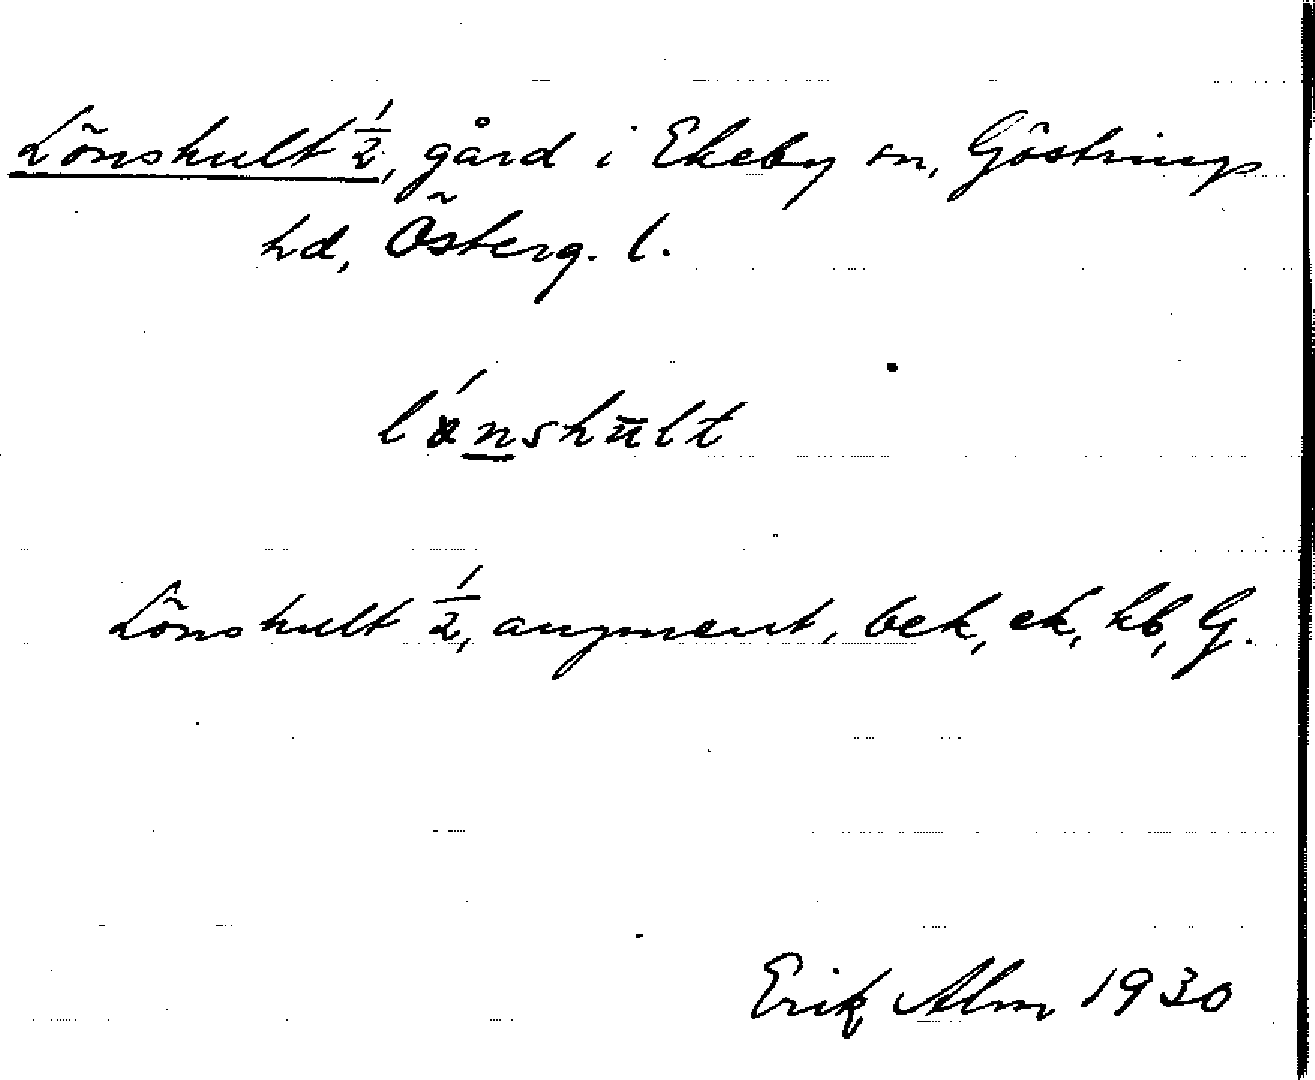 Lönshult 1/2, gård i Ekeby sn, Göstrings
hd, Österg. l.
lönshult
Lönshult 1/2, augment, bek, ek, hb, G.
Erik Alm 1930